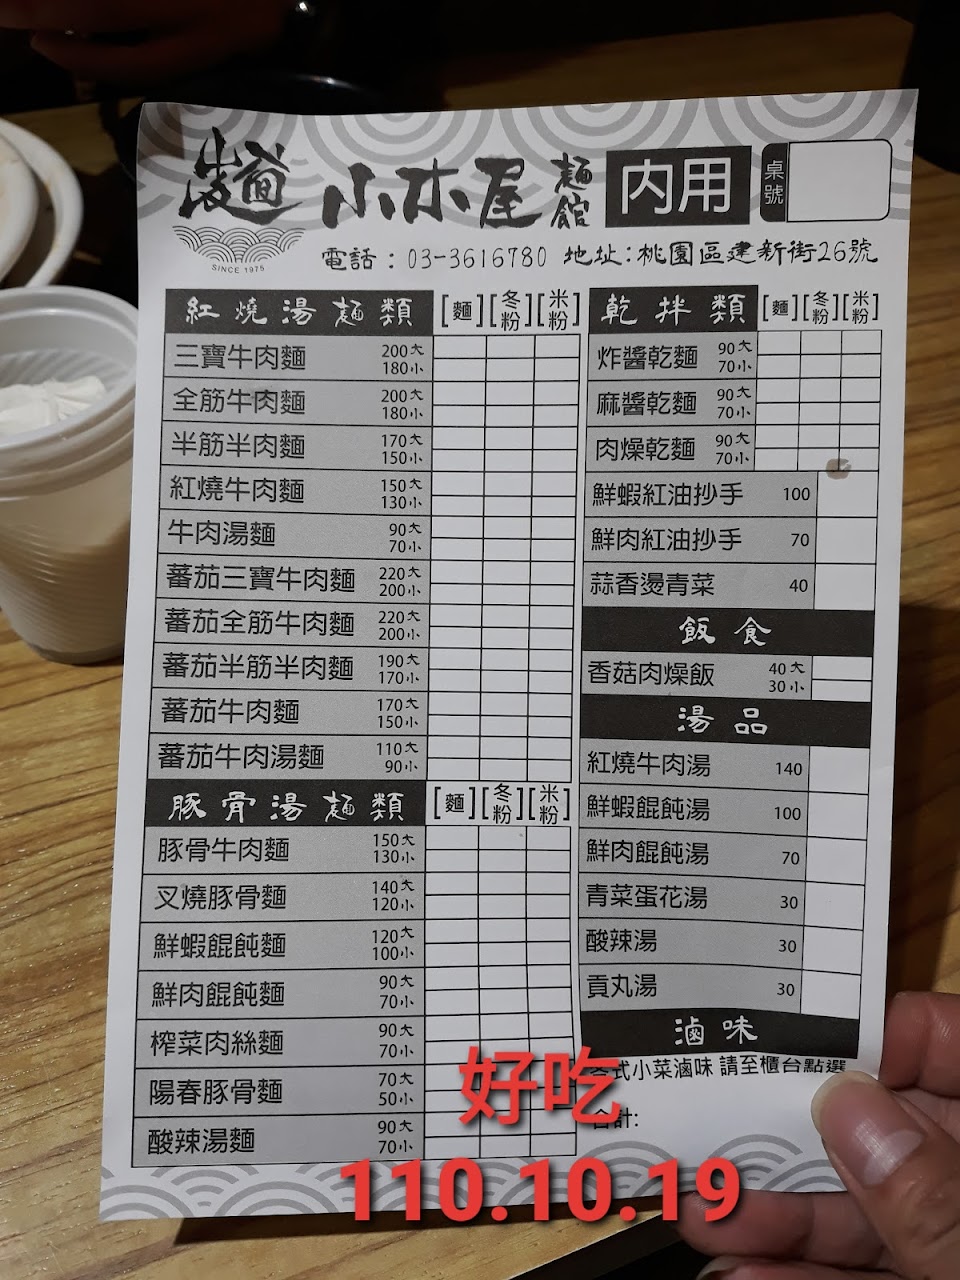 小木屋 麵館 內用 桌號
SINCE 1975
電話：03-3616780 地址：桃園區建新街26號
紅燒湯麵類 [麵] [冬粉] [米粉]
三寶牛肉麵 200大 180小
全筋牛肉麵 200大 180小
半筋半肉麵 170大 150小
紅燒牛肉麵 150大 130小
牛肉湯麵 90大 70小
蕃茄三寶牛肉麵 220大 200小
蕃茄全筋牛肉麵 220大 200小
蕃茄半筋半肉麵 190大 170小
蕃茄牛肉麵 170大 150小
蕃茄牛肉湯麵 110大 90小
豚骨湯麵類 [麵] [冬粉] [米粉]
豚骨牛肉麵 150大 130小
叉燒豚骨麵 140大 120小
鮮蝦餛飩麵 120大 100小
鮮肉餛飩麵 90大 70小
榨菜肉絲麵 90大 70小
陽春豚骨麵 70大 50小
酸辣湯麵 90大 70小
乾拌類 [麵] [冬粉] [米粉]
炸醬乾麵 90大 70小
麻醬乾麵 90大 70小
肉燥乾麵 90大 70小
鮮蝦紅油抄手 100
鮮肉紅油抄手 70
蒜香燙青菜 40
飯食
香菇肉燥飯 40大 30小
湯品
紅燒牛肉湯 140
鮮蝦餛飩湯 100
鮮肉餛飩湯 70
青菜蛋花湯 30
酸辣湯 30
貢丸湯 30
滷味
式小菜滷味 請至櫃台點選
計：
好吃
110.10.19